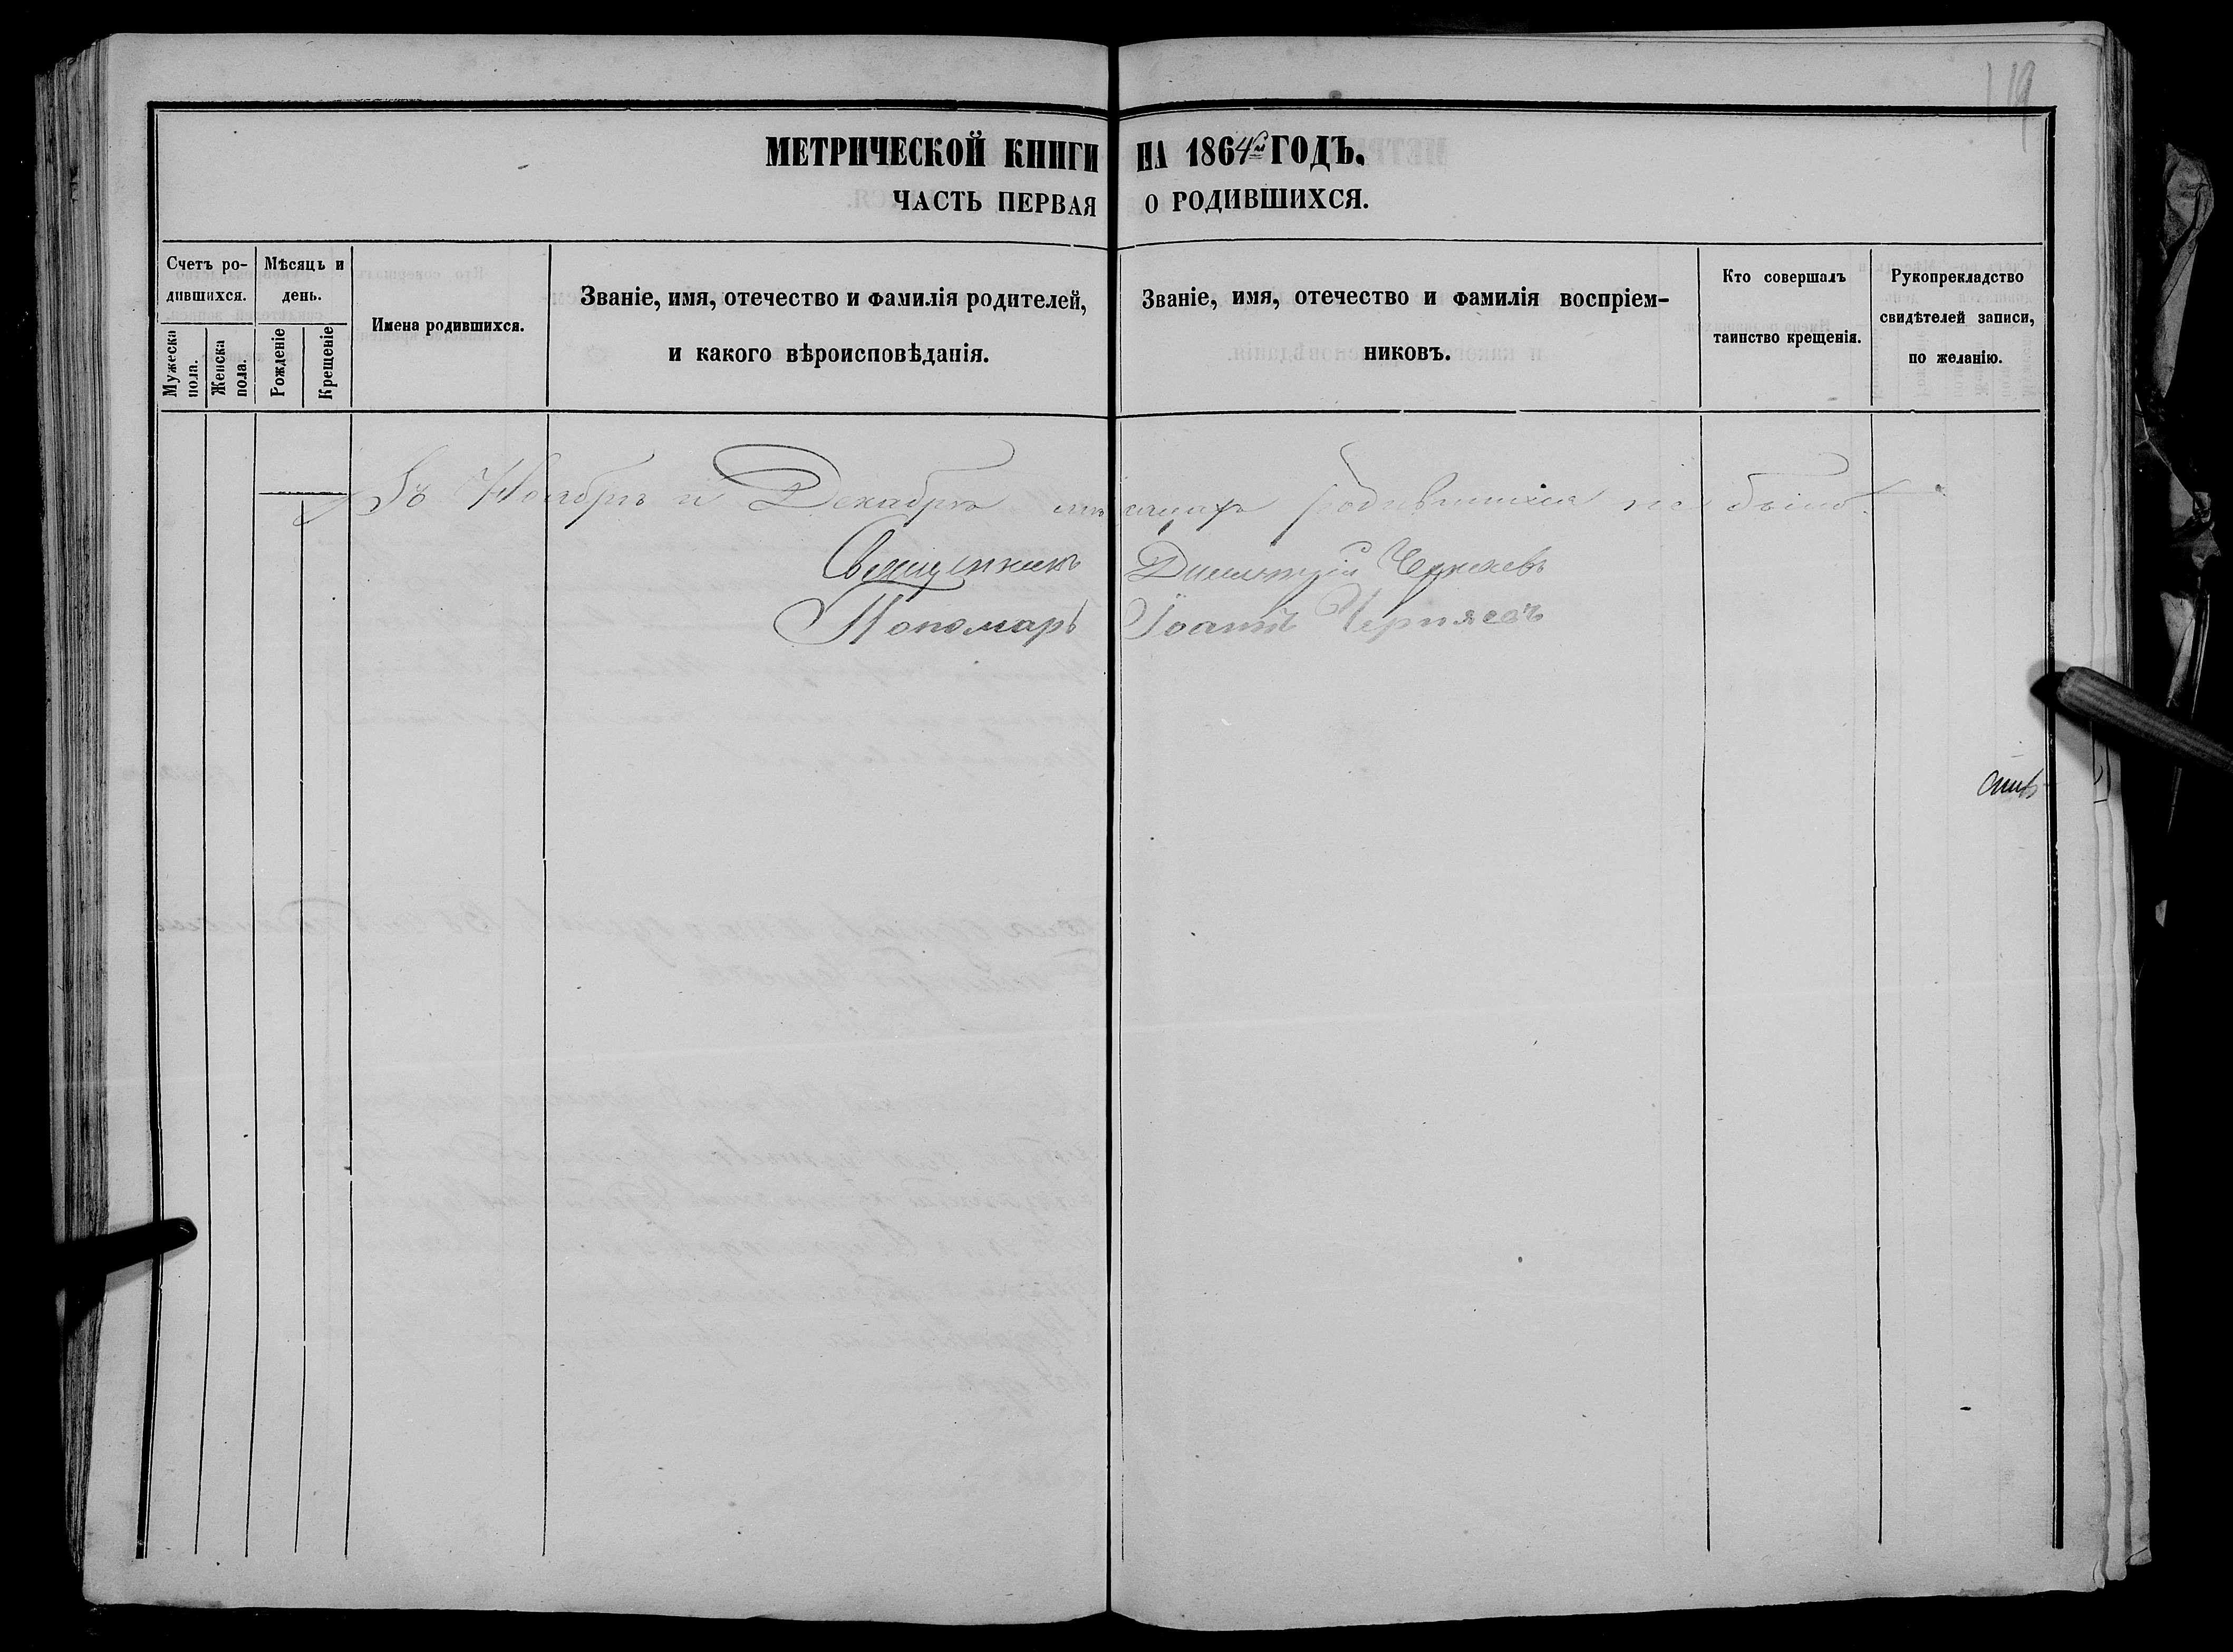 119
МЕТРИЧЕСКОЙ КНИГИ НА 1864й ГОДЪ.
ЧАСТЬ ПЕРВАЯ О РОДИВШИХСЯ.
Счетъ ро-
дившихся.
Мужеска пола.
Женска пола.
Мѣсяцъ и
день.
Рожденіе
Крещеніе
Имена родившихся.
Званіе, имя, отечество и фамилія родителей,
и какого вѣроисповѣданія.
Званіе, имя, отечество и фамилія воспріем-
никовъ.
Кто совершалъ
таинство крещенія.
Рукоприкладство
свидѣтелей записи,
по желанію.
Въ Ноябрѣ и Декабрѣ мѣсяцахъ родившихся не было.
Священникъ Димитрій
Пономарь Іоаннъ Черняевъ